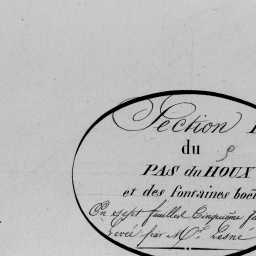 Section
du
PAS du HOUX
et des fontaines boë
En sept feuilles Cinquième
Levée par Mr. Lesné